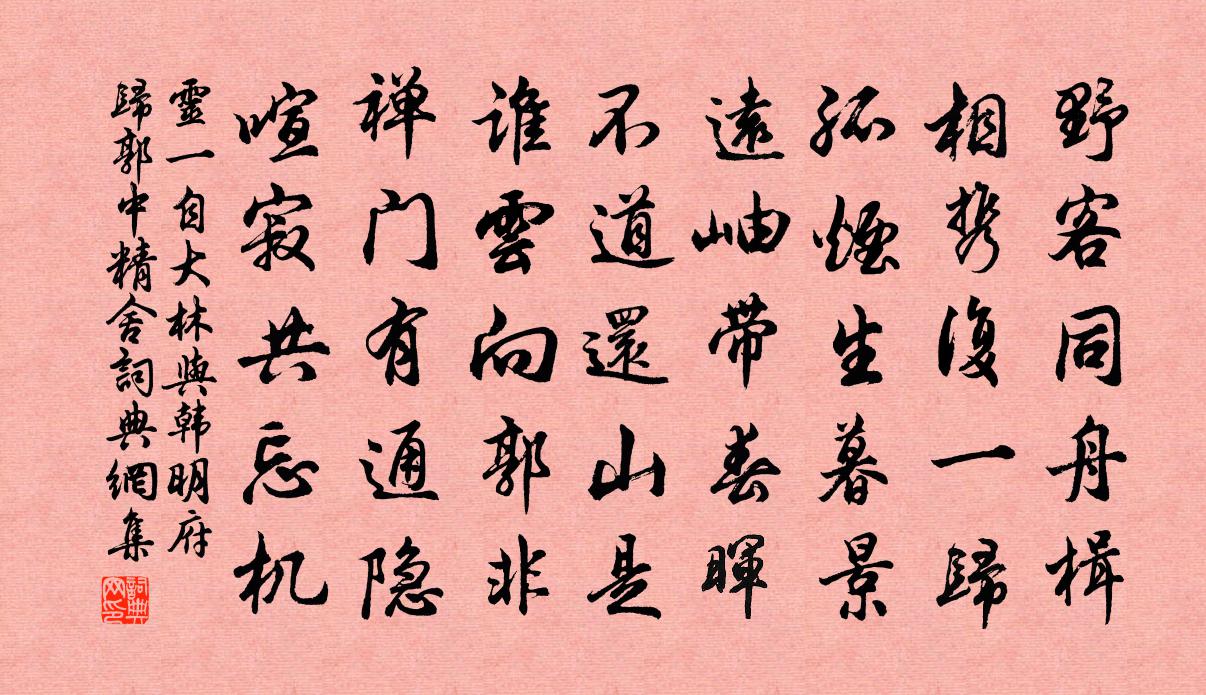 野客同舟楫
相携復一歸
孤煙生暮景
遠岫帶春暉
不道還山是
誰雲向郭非
禅门有通隐
喧寂共忘机
靈一自大林與韩明府
歸郭中精舍詞典網集
詞典网印